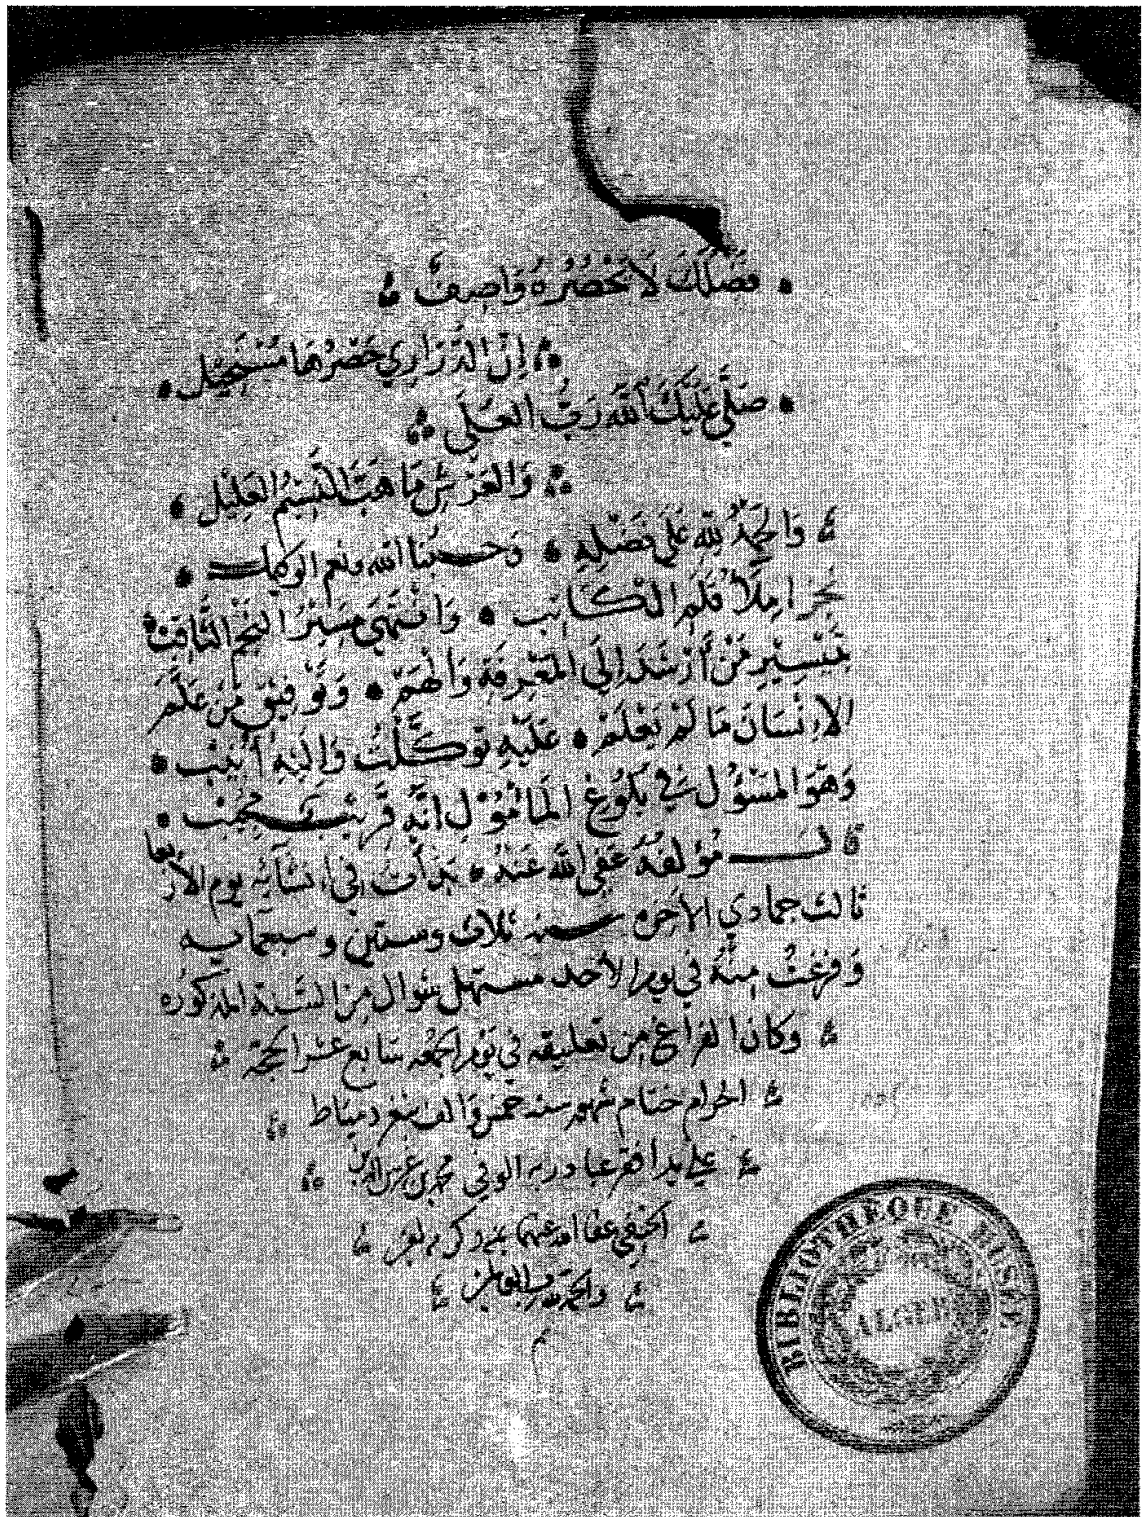 فَضْلُكَ لَا يَحْصُرُهُ وَاصِفٌ
إِنَّ الدَّرَارِي حَصْرُهَا مُسْتَحِيل
صَلَّى عَلَيْكَ اللهُ رَبُّ العُلَى
وَالعَرْشِ مَا هَبَّ النَّسِيمُ العَلِيْل
وَالحَمْدُ لِلّهِ عَلَى فَضْلِهِ وَحسبُنا الله ونعم الوكيل
نَجَزَ إِملَاءُ قَلَمِ الكَاتِب وَانْتَهَى مَسِيْرُ النَّجْمِ الثَّاقِبْ
بِتَيْسِيرِ مَنْ أَرْشَدَ إِلَى المَعْرِفَةِ وَأَلْهَمْ وَتَوْفِيْقِ مَنْ عَلَّمَ
الإِنْسَانَ مَا لَمْ يَعْلَمْ عَلَيْهِ تَوَكَّلْتُ وَإِلَيْهِ أُنِيْبْ
وَهُوَ المَسْؤُل فِي بُلُوغِ المَأْمُوْلِ إنَّهُ قَرِيْبٌ مُجِيْبْ
قال مُؤلفهُ عَفى الله عَنهُ بَدَأت فِي إنشَآئِهِ يوم الأربعا
ثالث جمادي الأخره سنه ثلاث وستين وسبعمايه
وَفرغتُ مِنْهُ فِي يوم الأحد مستهل شوال مِن السَّنة المذكوره
وكان الفراغ من تعليقه في يَوْم الجمعه سَابع عشر الحجة
الحرام ختام شهور سنه خمس وَالف بثغر دمياط
على يد افقر عباد ربه الوفي محمد بن غرس الدين
الحنفي عفا الله عنهما بمنه وكرمه
والحمد لله رب العالمين
م
BIBLIOTHÈQUE MUSÉE
ALGER